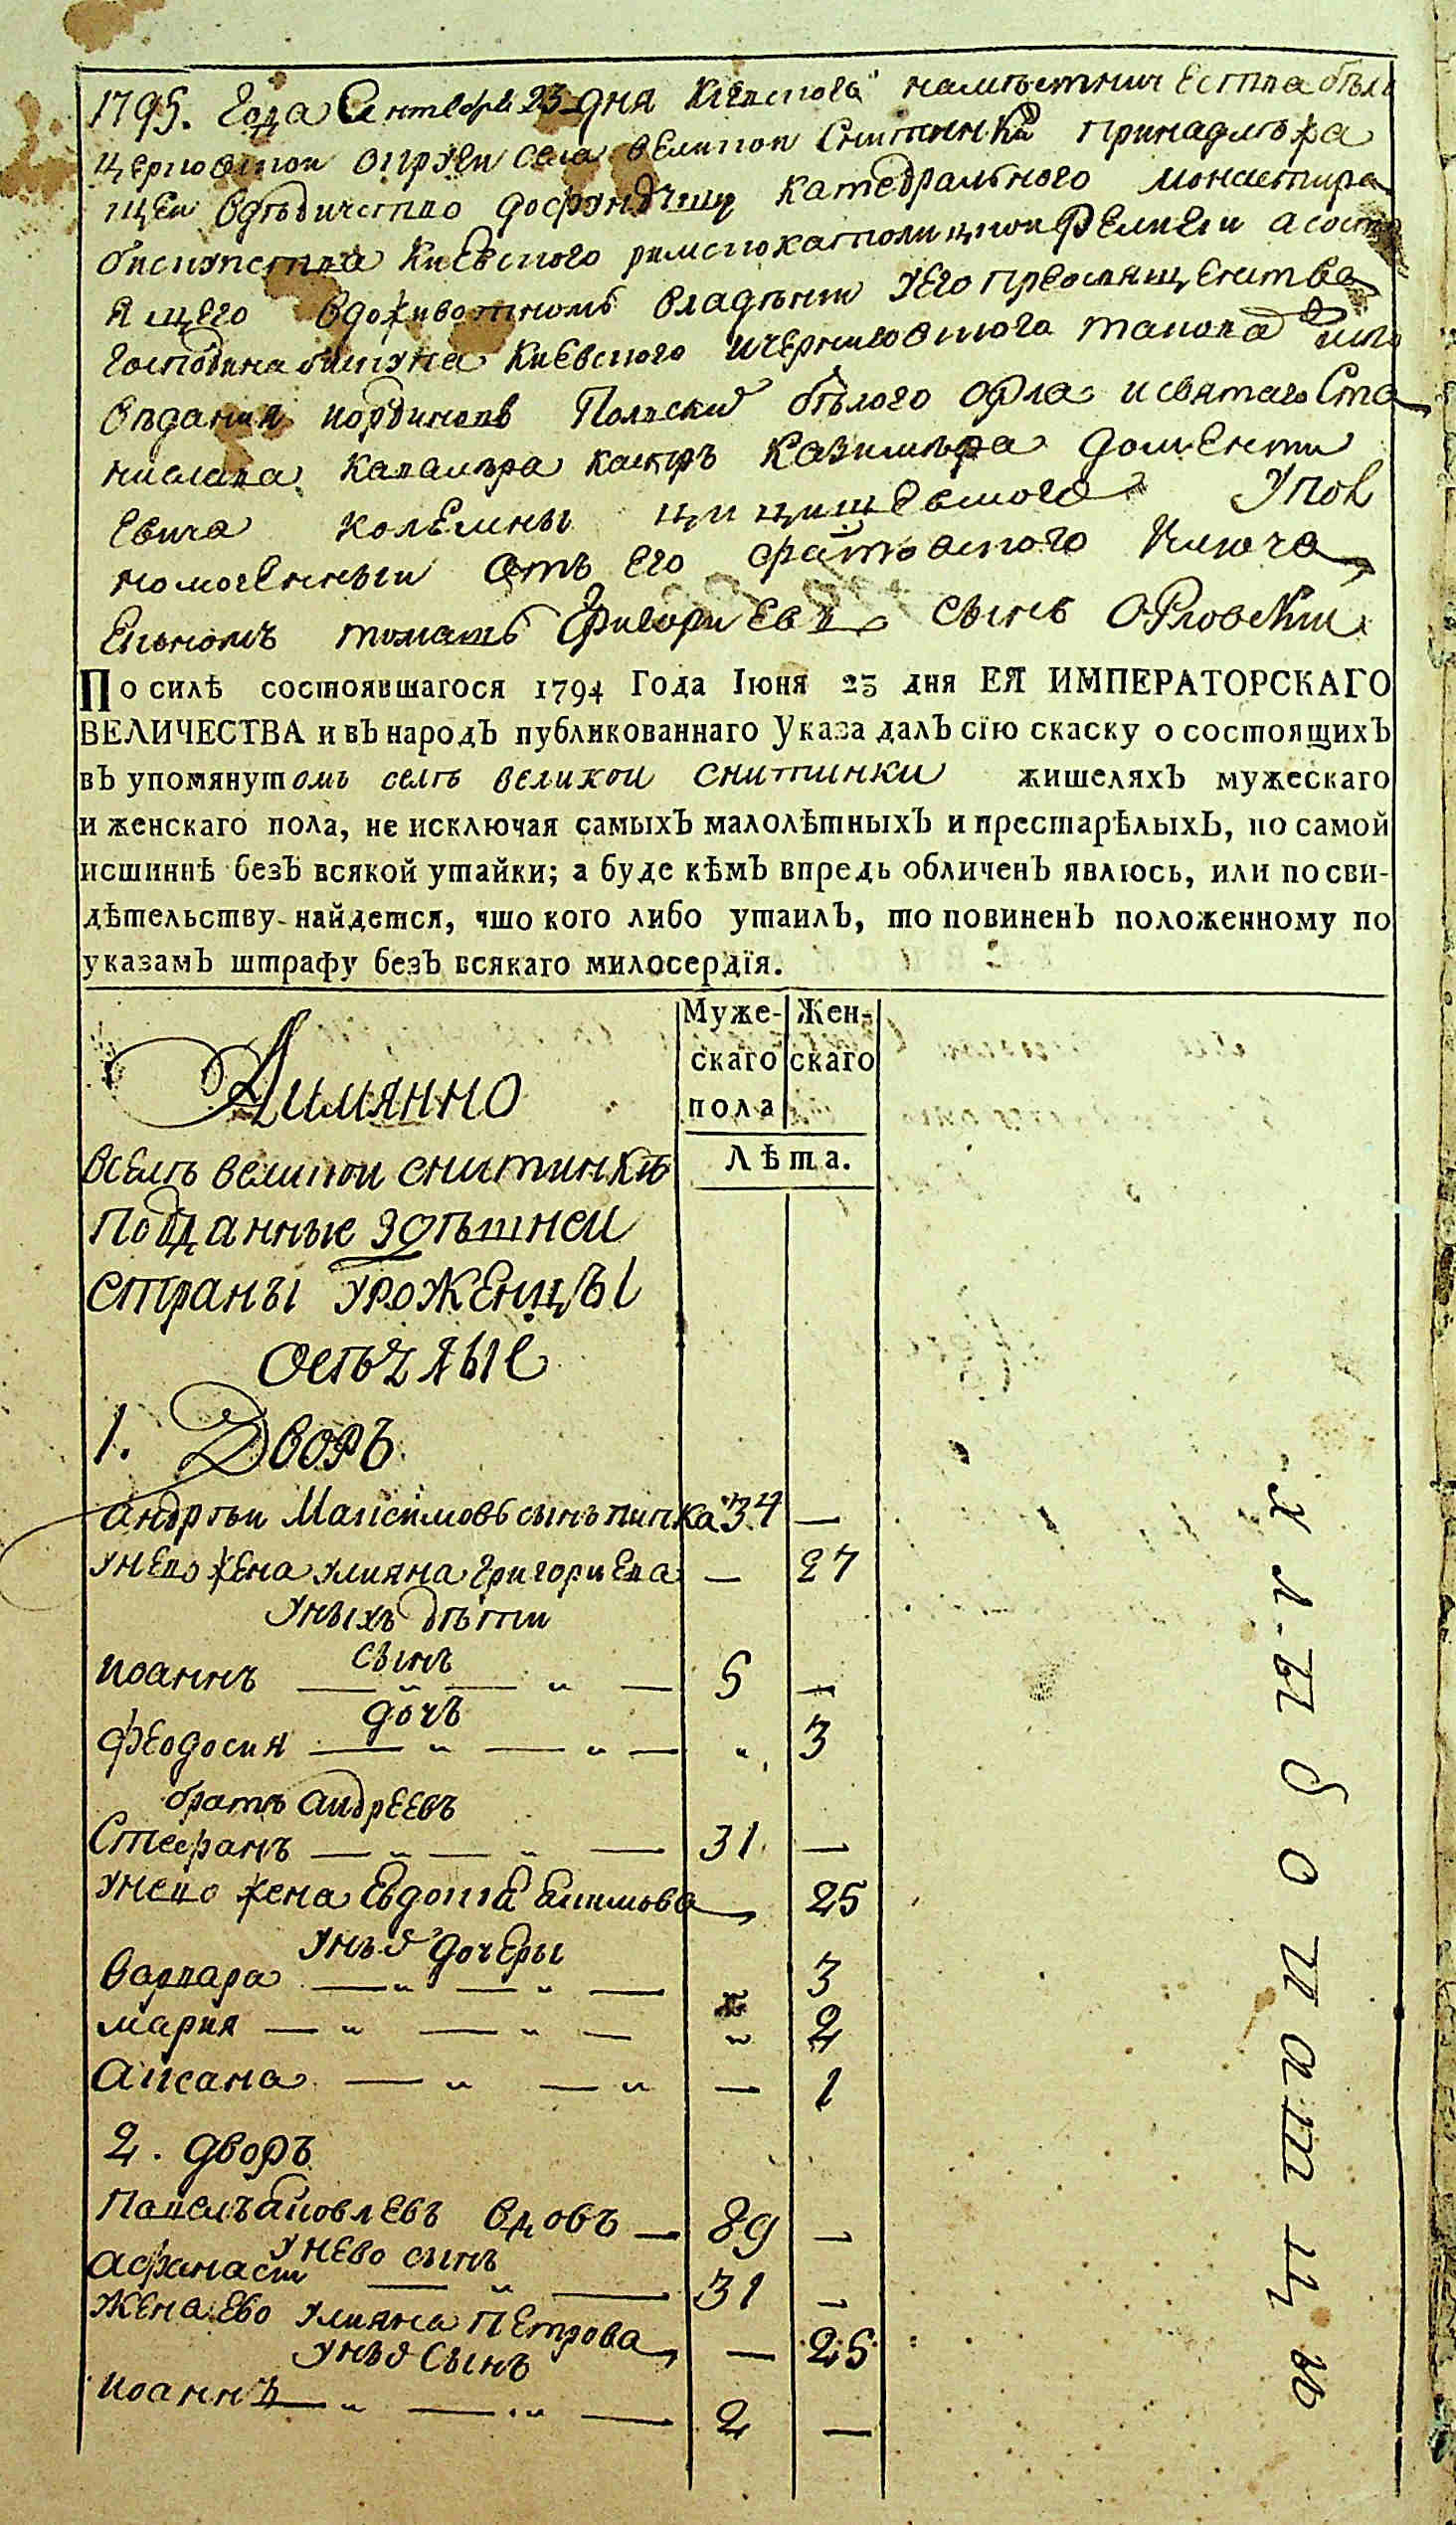 1795. Года Сентября 23 дня Киевского наместничества бѣло
церковской округи села великой Снитинки принадлежа
щей вдѣдичество дофундушу катедрального монастиря
бискупства Киевского римскокатолицкой Релиѣи а состо
ящего вдоживотномъ владѣнии уЕго преосвященства
Господина бискупа Киевского ичерниговского
ординовъ Полскихъ бѣлого Орла исвятаго Ста
нислава Кавалѣра Каспръ Казимѣра доменти
евича колюмны цицишевского Упол
номоченный отъ его фастовского Ключа
Економъ томашъ Григориевъ сынъ ОРловский
По силѣ состоявшагося 1794 Года Іюня 23 дня ЕЯ ИМПЕРАТОРСКАГО
ВЕЛИЧЕСТВА и въ народъ публикованнаго Указа далъ сію скаску о состоящихъ
въ упомянутомъ селѣ великой снитинки жителяхъ мужескаго
и женскаго пола, не исключая самыхъ малолѣтныхъ и престарѣлыхъ, по самой
истиннѣ безъ всякой утайки; а буде кѣмъ впредь обличенъ явлюсь, или по сви-
дѣтельству найдется, что кого либо утаилъ, то повиненъ положенному по
указамъ штрафу безъ всякаго милосердія.
Муже-скаго пола
Жен-скаго
Лѣта.
Аимянно
вселѣ великой снитинкѣ
подданные здѣшней
страны уроженцы
осѣдлые
1. Дворъ
андрѣй Максимовъ сынъ пипка 34 —
унево жена улияна григориева — 27
уныхъ дѣти
сынъ
иоаннъ — " — " — 5 —
дочъ
феодосия — " — " — " 3
братъ андреевъ
Стефанъ — " — " — 31 —
унево жена Евдокия — 25
унъихъ дочеры
варвара — " — " — 3
мария — " — " — " 2
аксана — " — " — 1
2. дворъ
Павелъ яковлевъ вдовъ — 89 —
унево сынъ
афанасий — " — 31 —
жена ево улияна петрова — 25
унъихъ сынъ
иоаннъ — " — " — 2 —